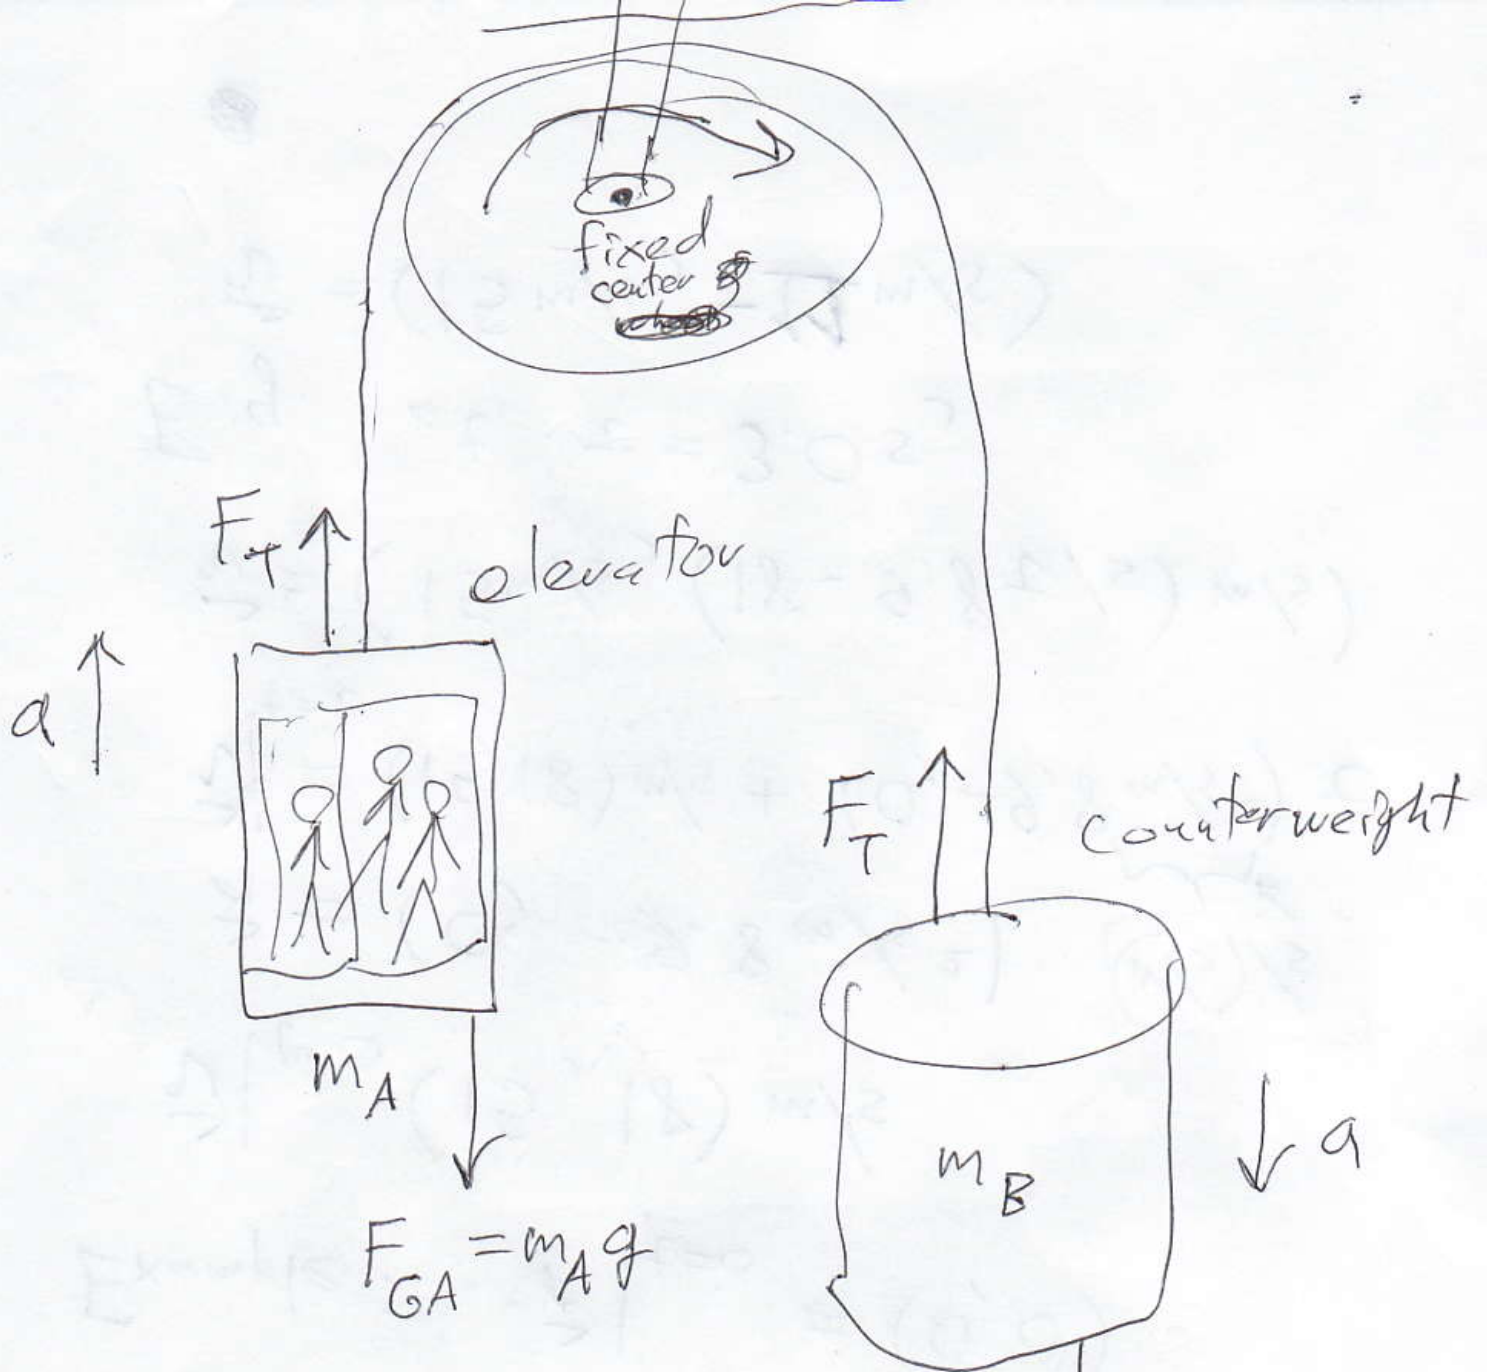 fixed
center
F_T
elevator
a
F_T
counterweight
m_A
m_B
a
F_GA = m_A g